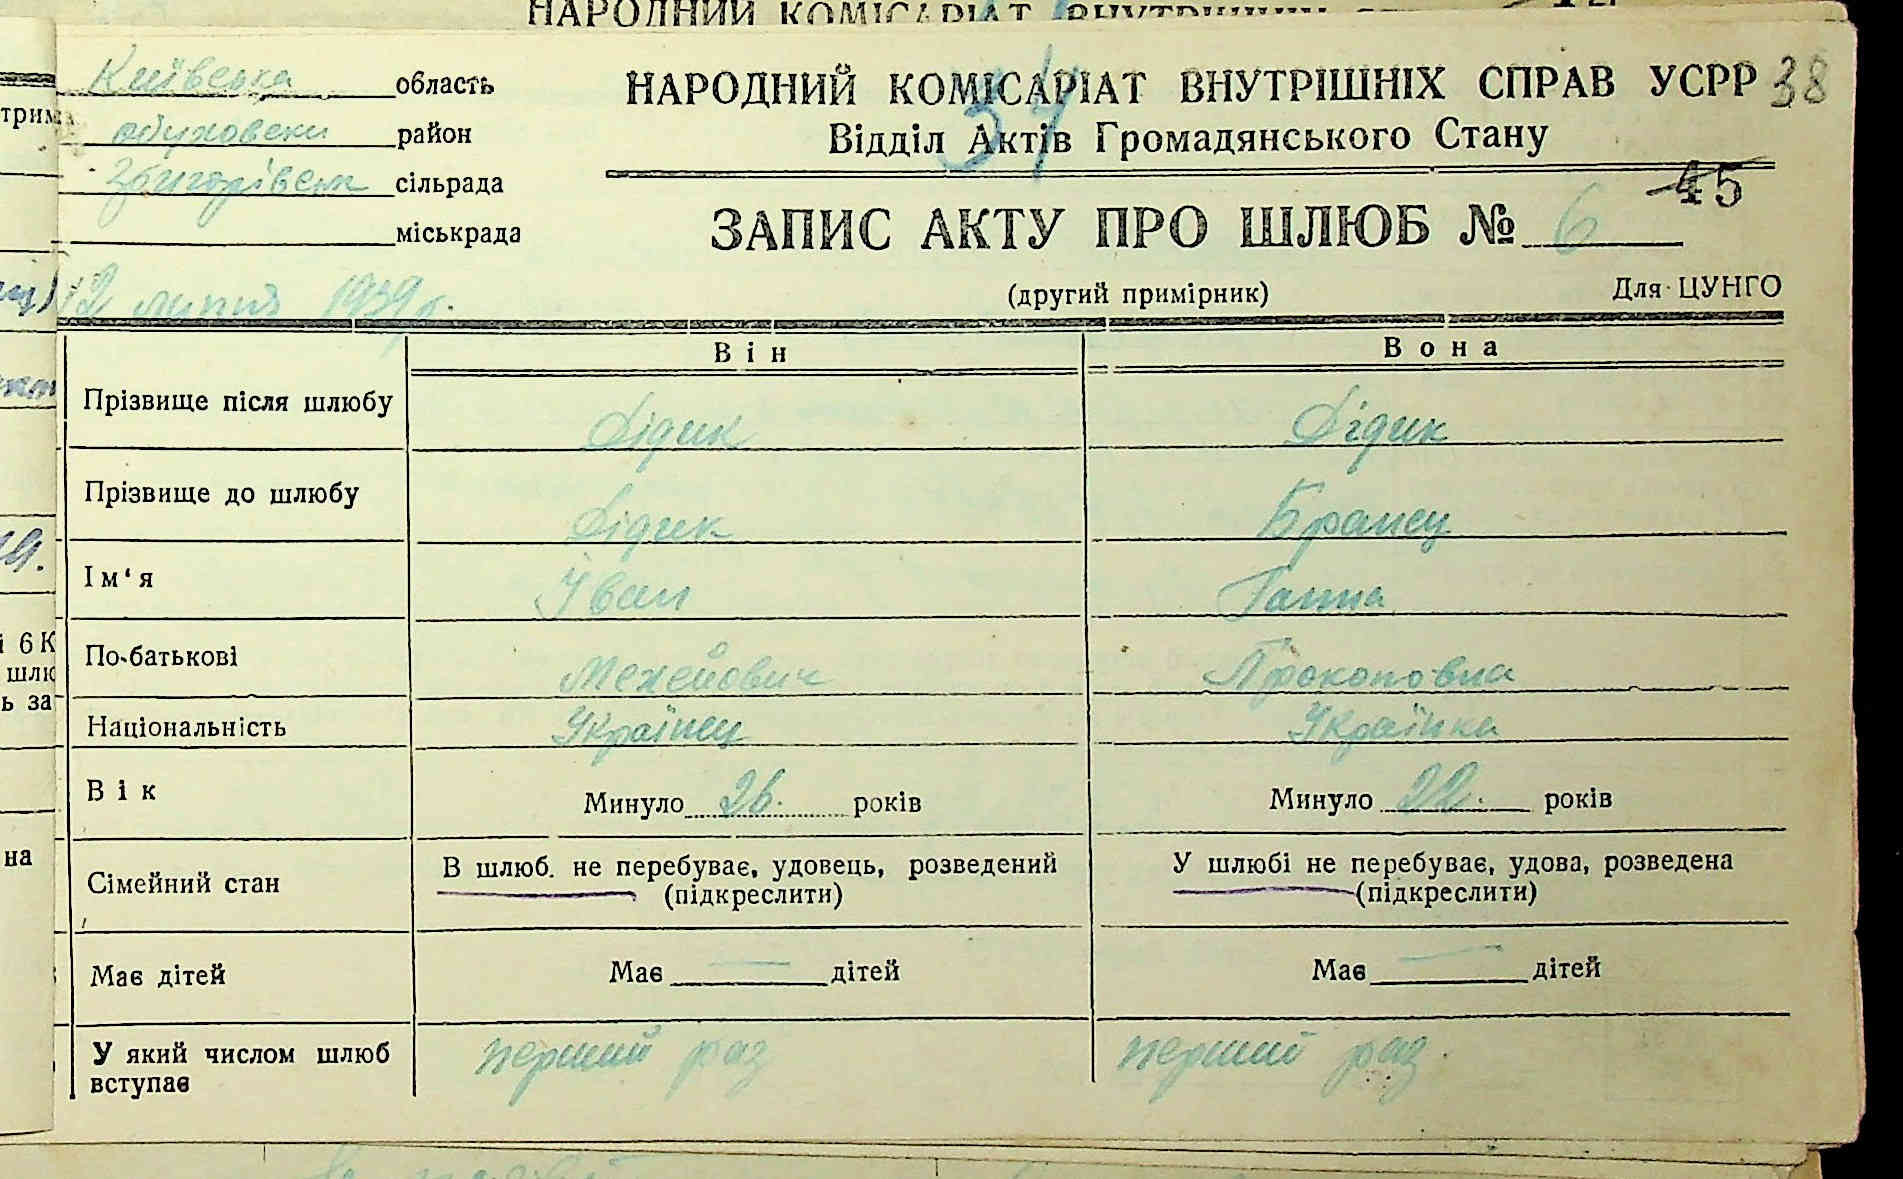 НАРОДНИЙ КОМІСАРІАТ ВНУТРІШНІХ
Київська область
Обуховськи район
сільрада
міськрада
НАРОДНИЙ КОМІСАРІАТ ВНУТРІШНІХ СПРАВ УСРР 38
34
Відділ Актів Громадянського Стану
45
ЗАПИС АКТУ ПРО ШЛЮБ № 6
(другий примірник) Для ЦУНГО
12 липня 1939 р.
Він Вона
Прізвище після шлюбу Дідик Дідик
Прізвище до шлюбу Дідик Бранец
Ім‘я Іван Ганна
По-батькові Мехейович Прокоповна
Національність Українец Українка
Вік Минуло 26. років Минуло 22. років
Сімейний стан В шлюб. не перебуває, удовець, розведений (підкреслити) У шлюбі не перебуває, удова, розведена (підкреслити)
Має дітей Має — дітей Має — дітей
У який числом шлюб вступає перший раз перший раз.